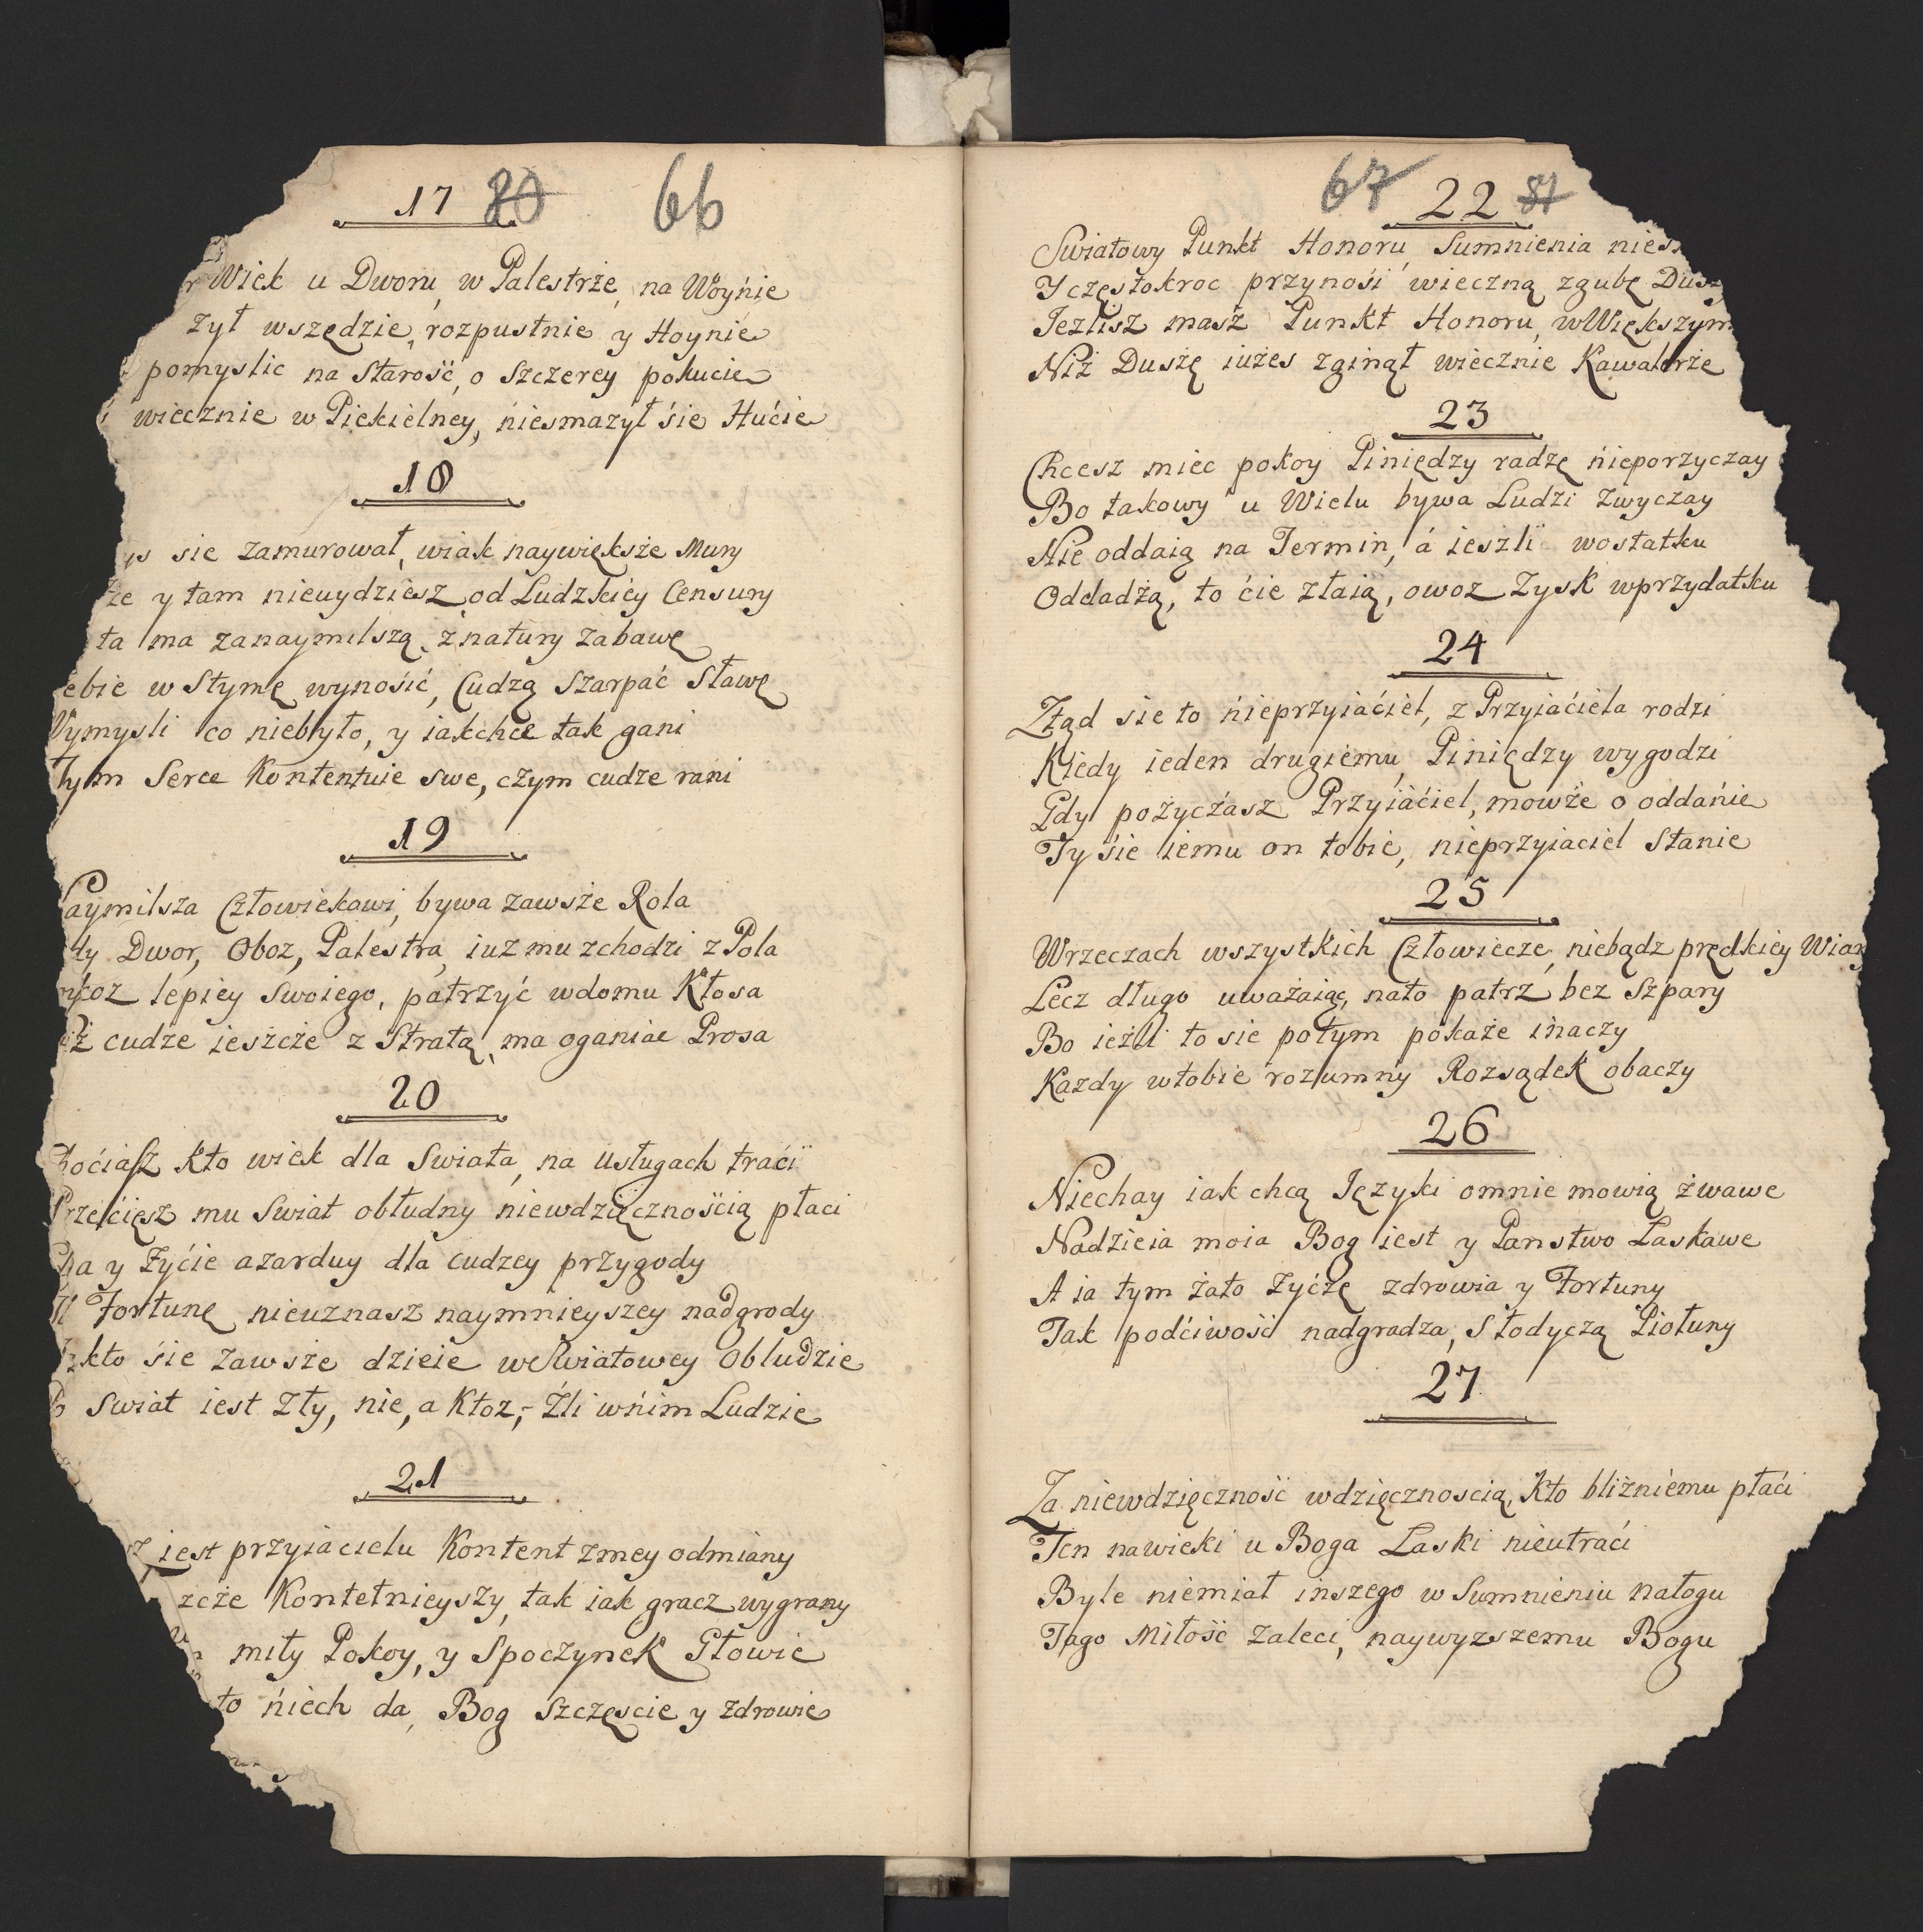 17 80 66
Wiek u Dworu, w Palestrże, na Woyńie
zył wszędzie, rozpustnie y Hoynie
pomyslic na Starość, o Szczerey pokucie
wiecznie w Piekielney, niesmazył śie Hućie
18
sie zamurował, wiak naywiększe Mury
że y tam nieuydziesz od Ludzkiey Censury
ta ma zanaymilszą, z natury zabawę
ebie w Stymę wynośić, Cudzą Szarpać Sławę
Wymysli co niebyło, y iakchce tak gani
Tym Serce Kontentuie swe, czym cudze rani
19
aymilsza Człowiekowi, bywa zawsże Rola
dy Dwor, Oboz, Palestra, iuz mu zchodzi z Pola
lepiey Swoiego, patrzyć wdomu Kłosa
iż cudze ieszcże z Stratą, ma oganiac Prosa
20
hoćiasz Kto wiek dla Swiata, na Usługach traći
Przećięsz mu Swiat obłudny niewdzięcznośćią płaci
y Życie azarduy dla cudzey przygody
Fortunę nieuznasz naymnieyszey nadgrody
kto śie zawsże dzieie wSwiatowey Obludzie
Swiat iest Zły, nie, a Ktoz,- Źli wńim Ludzie
21
iest przyiacielu Kontent zmey odmiany
zcże Kontetnieyszy, tak iak gracz wygrany
miły Pokoy, y Spoczynek Głowie
to ńiech da, Bog Szczęscie y zdrowie
67 22 81
Swiatowy Punkt Honoru, Sumnienia nies
Y częstokroc przynośi wieczną zgubę Dusz
Jezlisz masż Punkt Honoru, wWiększym
Niż Duszę iużes zginął wiecznie Kawalerże
23
Chcesz miec pokoy Piniędzy radzę ńieporzyczay
Bo takowy u Wielu bywa Ludzi Zwyczay
Nie oddaią na Termin, á ieszli wostatku
Oddadżą, to ćie złaią, owoz Zysk wprzydatku
24
Ztąd sie to ńieprzyiaćiel, z Przyiaćiela rodzi
Kiedy ieden drugiemu, Piniędzy wygodzi
Gdy pożyczasz Przyiaćiel, mowże o oddańie
Ty śie iemu on tobie, nieprzyiaciel Stanie
25
Wrzeczach wszystkich Człowiecze, niebądz prędkiey Wiar
Lecz długo uważaiąc, nato patrz bez Szpary
Bo ieżli to sie potym pokaże inaczy
Kazdy wtobie rozumny Rozsądek obaczy
26
Niechay iak chcą Języki omnie mowią żwawe
Nadzieia moia Bog iest y Panstwo Laskawe
A ia tym żato życżę zdrowia y Fortuny
Tak podćiwość nadgradza, Słodyczą Piołuny
27
Za niewdzięczność wdzięcznoscią, Kto bliżniemu płaći
Ten nawieki u Boga Laski nieutraći
Byle niemiał inszego w Sumnieniu nałogu
Tago Miłość zaleci, naywyzszemu Bogu